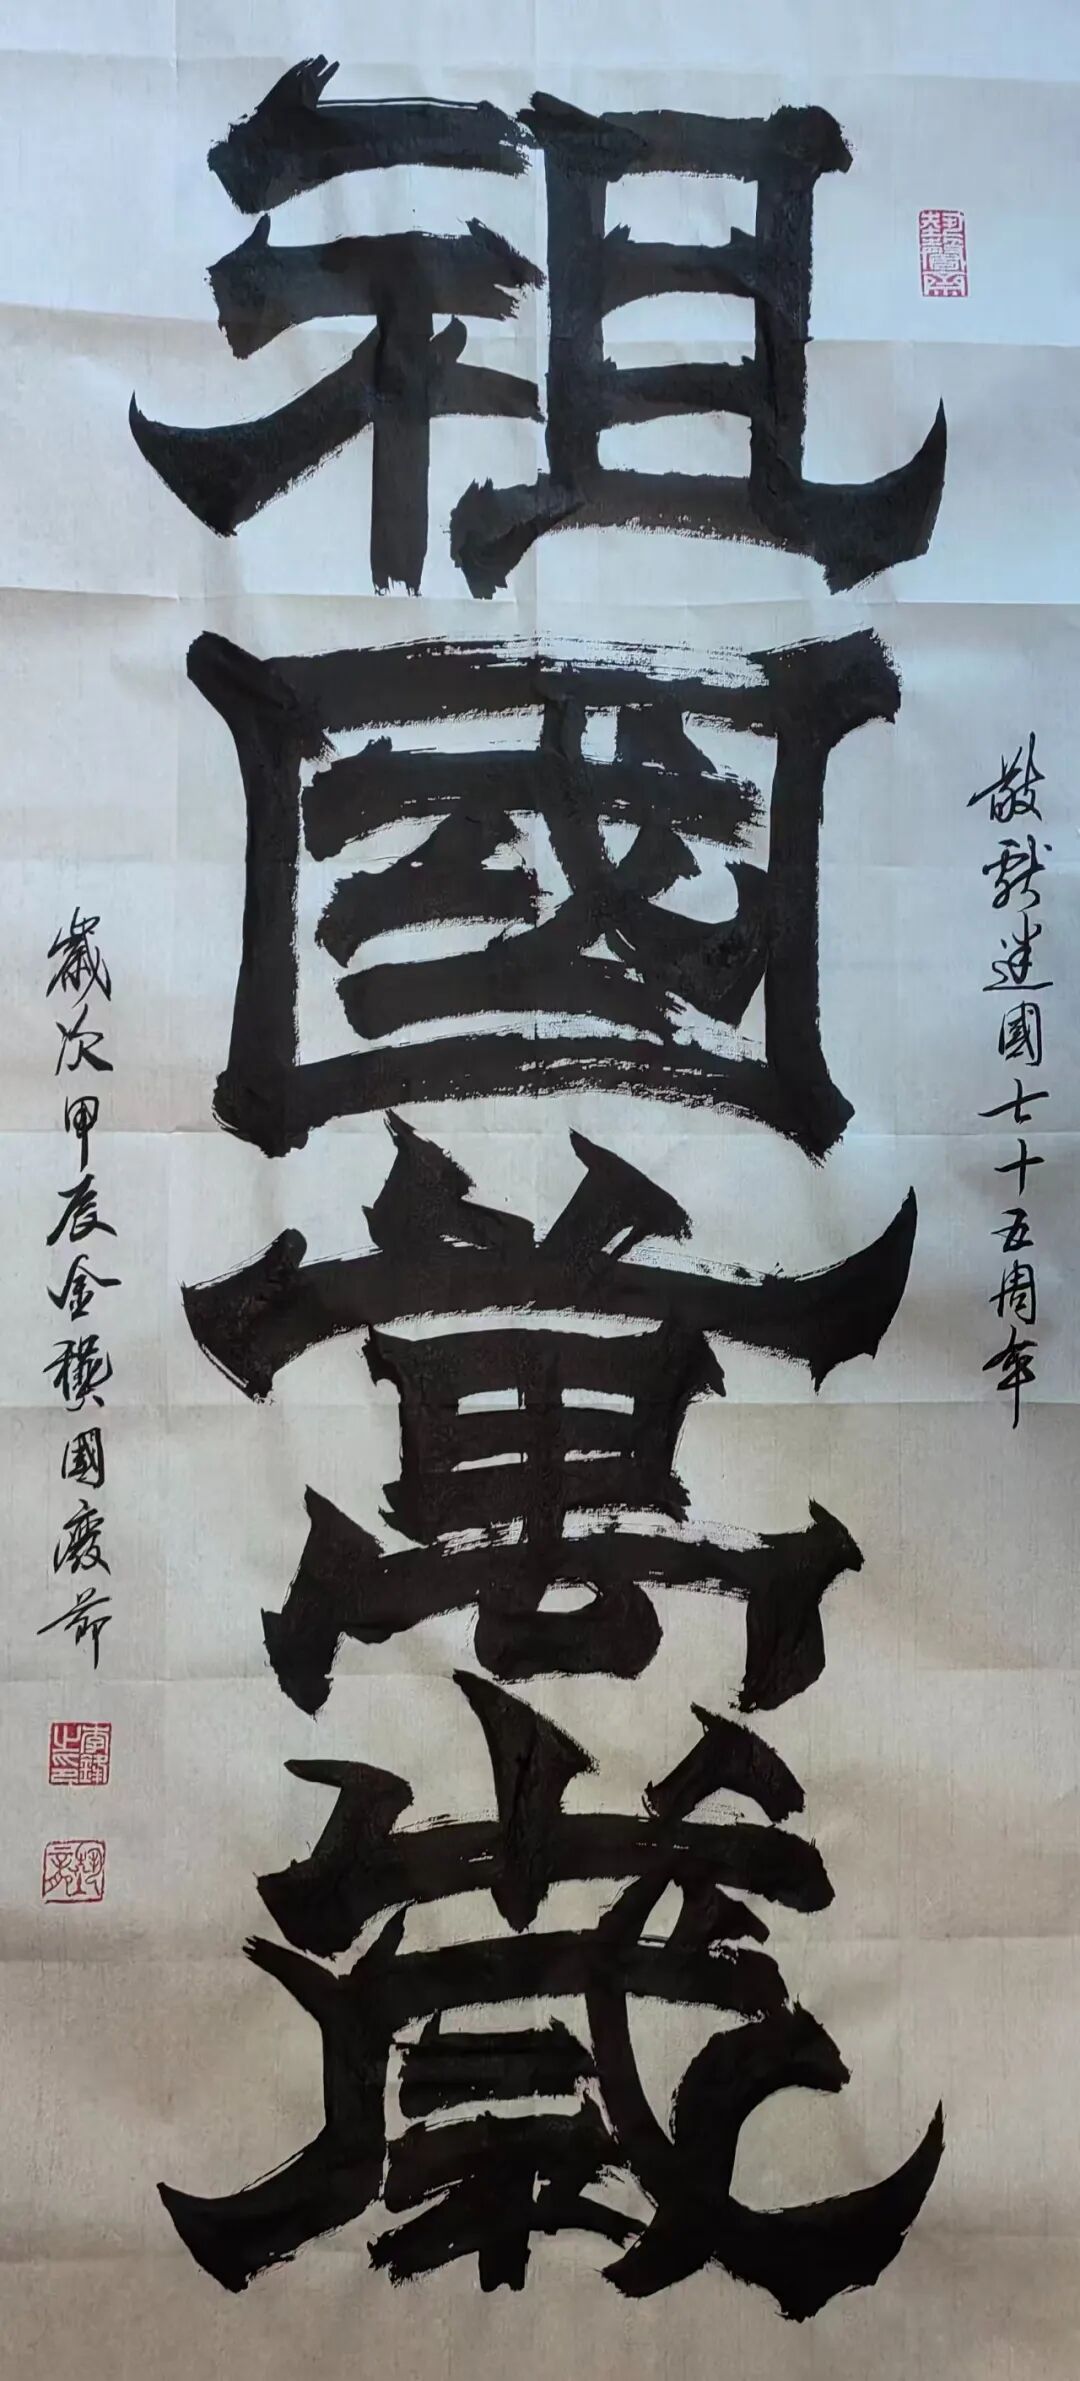 敬獻建國七十五周年
祖國萬歲
歲次甲辰金 國慶節